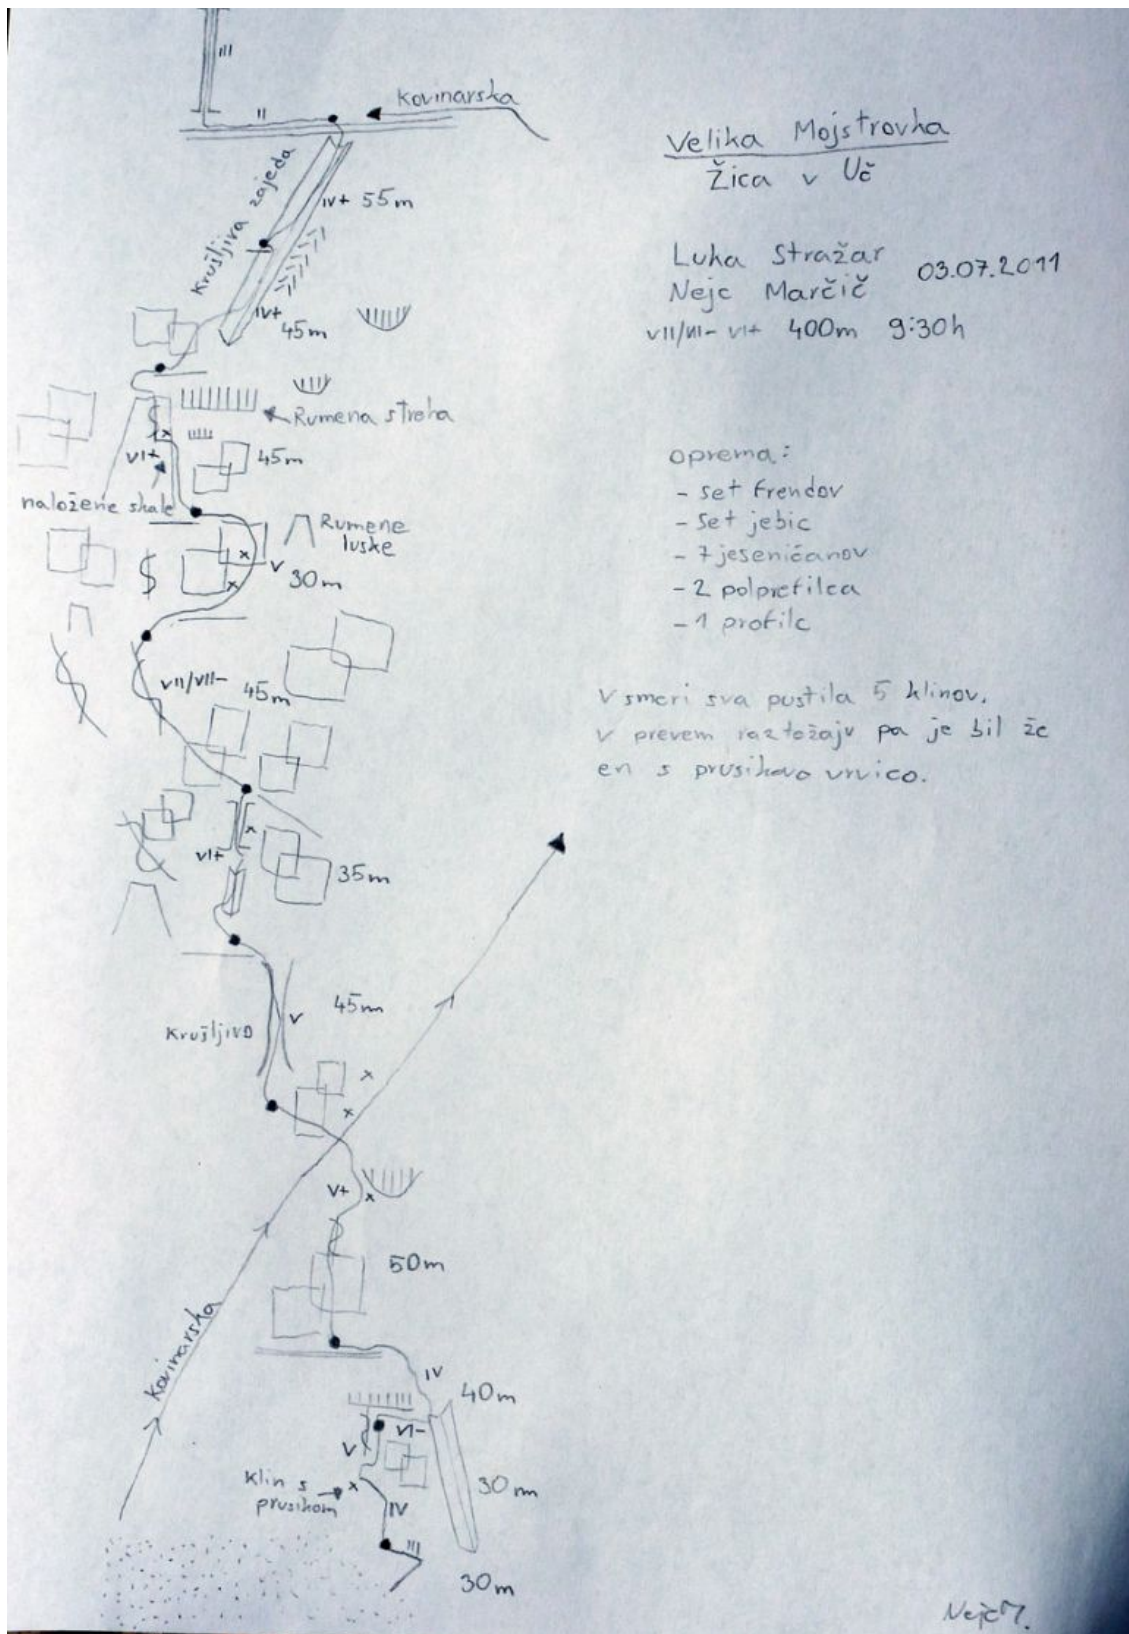 III
II
Kovinarska
Krušljiva zajeda
IV+ 55m
IV+
45m
Rumena streha
VI+
45m
naložene skale
Rumene
luske
V
30m
VII/VII-
45m
VI+
35m
45m
V
Krušljivo
V+
50m
Kovinarska
IV
40m
VI-
V
Klin s
prusikom
30m
IV
III
30m
Velika Mojstrovka
Žica v Uč
Luka Stražar
Nejc Marčič
03.07.2011
VII/VII- VI+ 400m 9:30h
oprema:
- set frendov
- set jebic
- 7 jeseničanov
- 2 polprefilca
- 1 profilc
V smeri sva pustila 5 klinov.
V prevem raztežaju pa je bil že
en s prusikovo vrvico.
Nejc M.